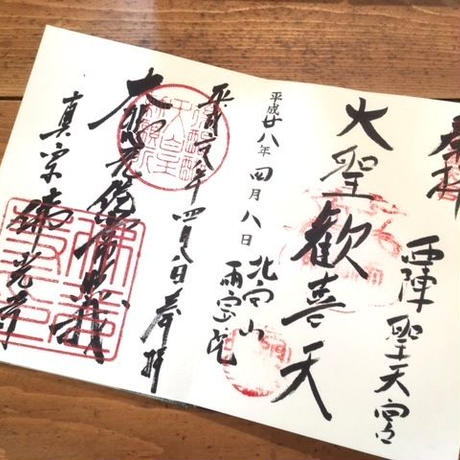 奉拝
西陣聖天宮
大聖歡喜天
北向山
雨宝院
平成廿八年 四月八日
平成二八年四月八日奉拝
大悲無倦常照我
真宗佛光寺